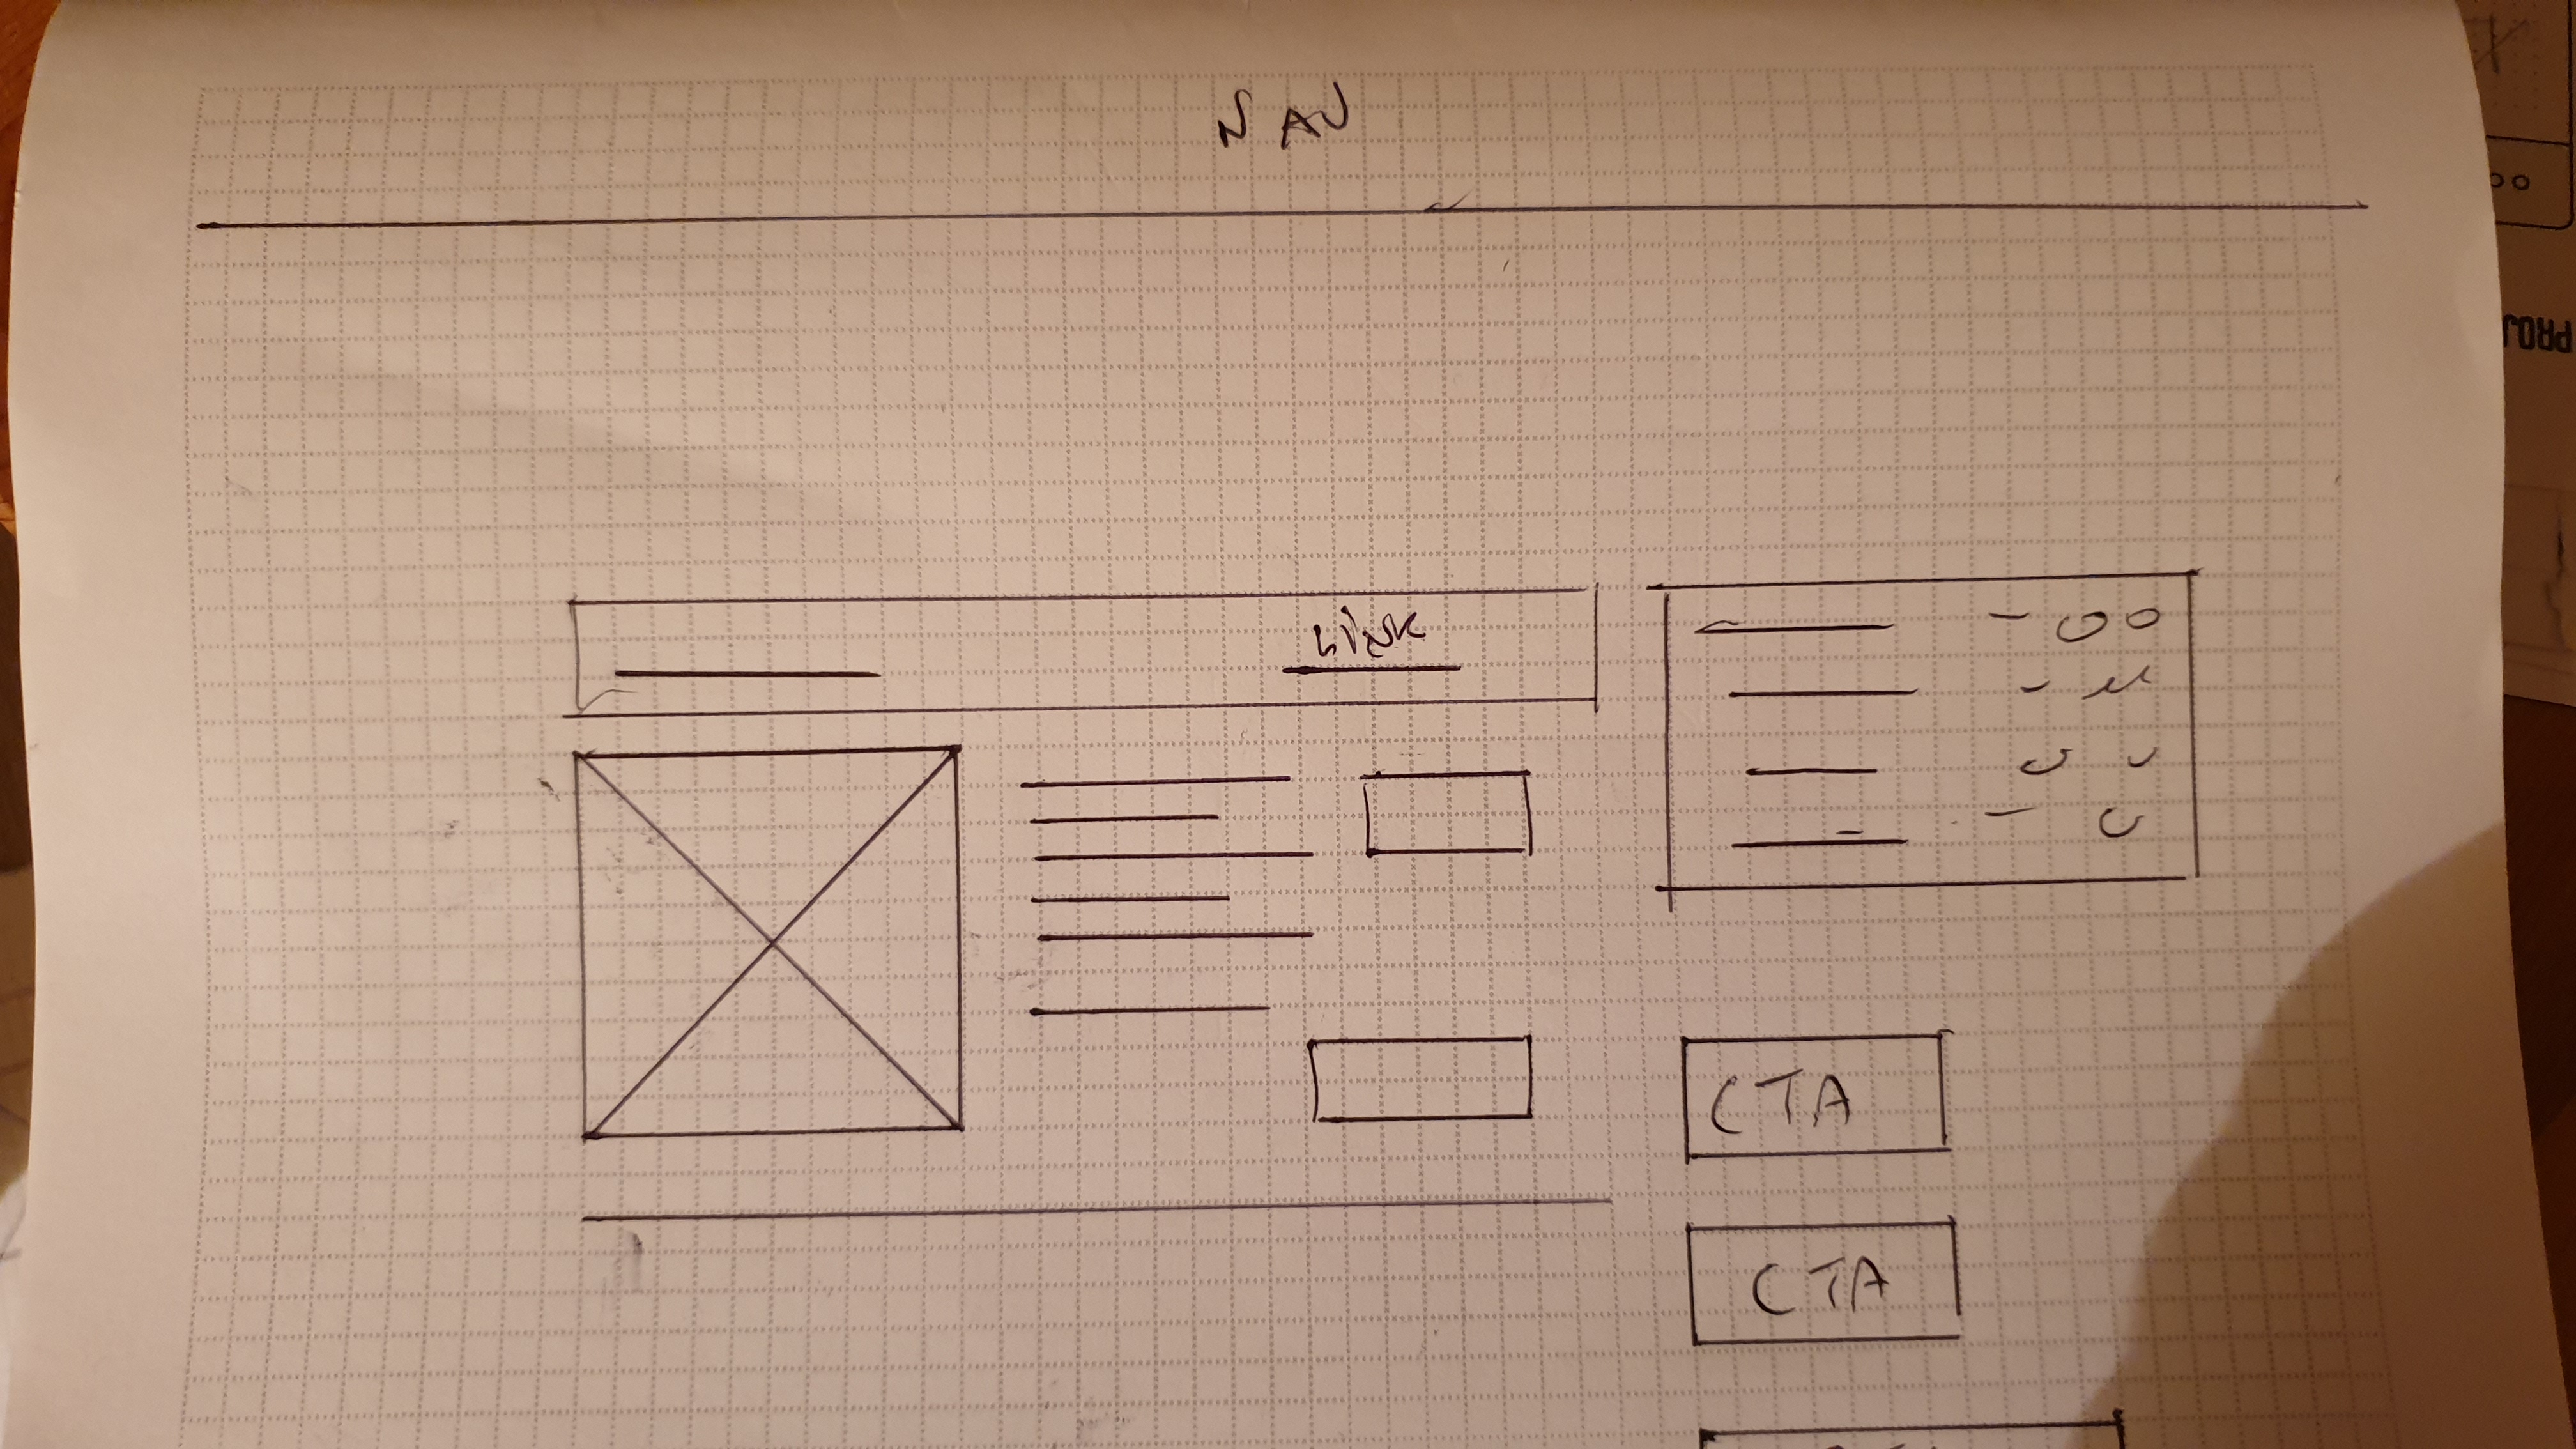 NAV
LINK
CTA
CTA
PROJ